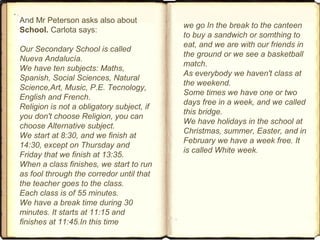 And Mr Peterson asks also about
School. Carlota says:
Our Secondary School is called
Nueva Andalucía.
We have ten subjects: Maths,
Spanish, Social Sciences, Natural
Science,Art, Music, P.E. Tecnology,
English and French.
Religion is not a obligatory subject, if
you don't choose Religion, you can
choose Alternative subject.
We start at 8:30, and we finish at
14:30, except on Thursday and
Friday that we finish at 13:35.
When a class finishes, we start to run
as fool through the corredor until that
the teacher goes to the class.
Each class is of 55 minutes.
We have a break time during 30
minutes. It starts at 11:15 and
finishes at 11:45.In this time
we go In the break to the canteen
to buy a sandwich or somthing to
eat, and we are with our friends in
the ground or we see a basketball
match.
As everybody we haven't class at
the weekend.
Some times we have one or two
days free in a week, and we called
this bridge.
We have holidays in the school at
Christmas, summer, Easter, and in
February we have a week free. It
is called White week.